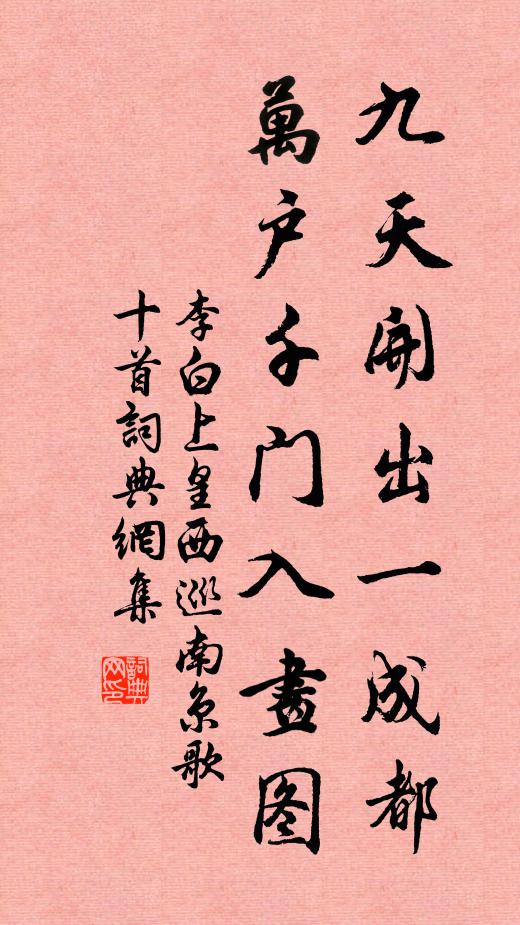 九天開出一成都
萬户千门入畫图
李白上皇西巡南京歌
十首詞典網集
詞典网印